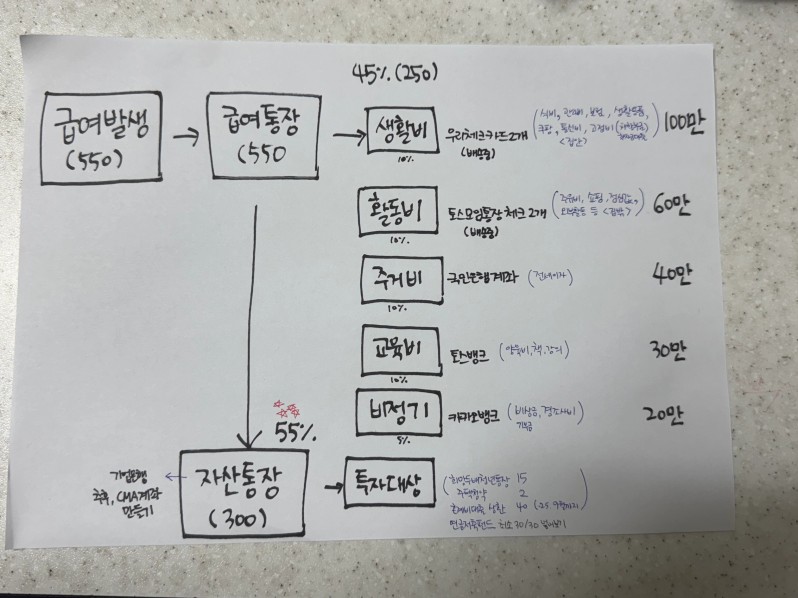 45% (250)
급여발생
(550)
급여통장
(550
생활비
10%
우리체크카드 2개
(배송중)
(식비, 관리비, 보험, 생활용품,
쿠팡, 통신비, 고정비
<집안>
100만
활동비
10%
토스모임통장 체크 2개
(배송중)
(주유비, 쇼핑,
등 <집밖>)
60만
주거비
10%
국민은행계좌 (전세이자)
40만
교육비
10%
토스뱅크 (양육비, 책, 강의)
30만
비정기
5%
카카오뱅크 (비상금, 경조사비)
기부금
20만
55%
자산통장
(300)
기업은행
추후, CMA계좌
만들기
투자대상
(희망두배청년통장 15
주택청약 2
상환 40 (25.9월까지)
연금저축펀드 최소 30/30 넣어보기